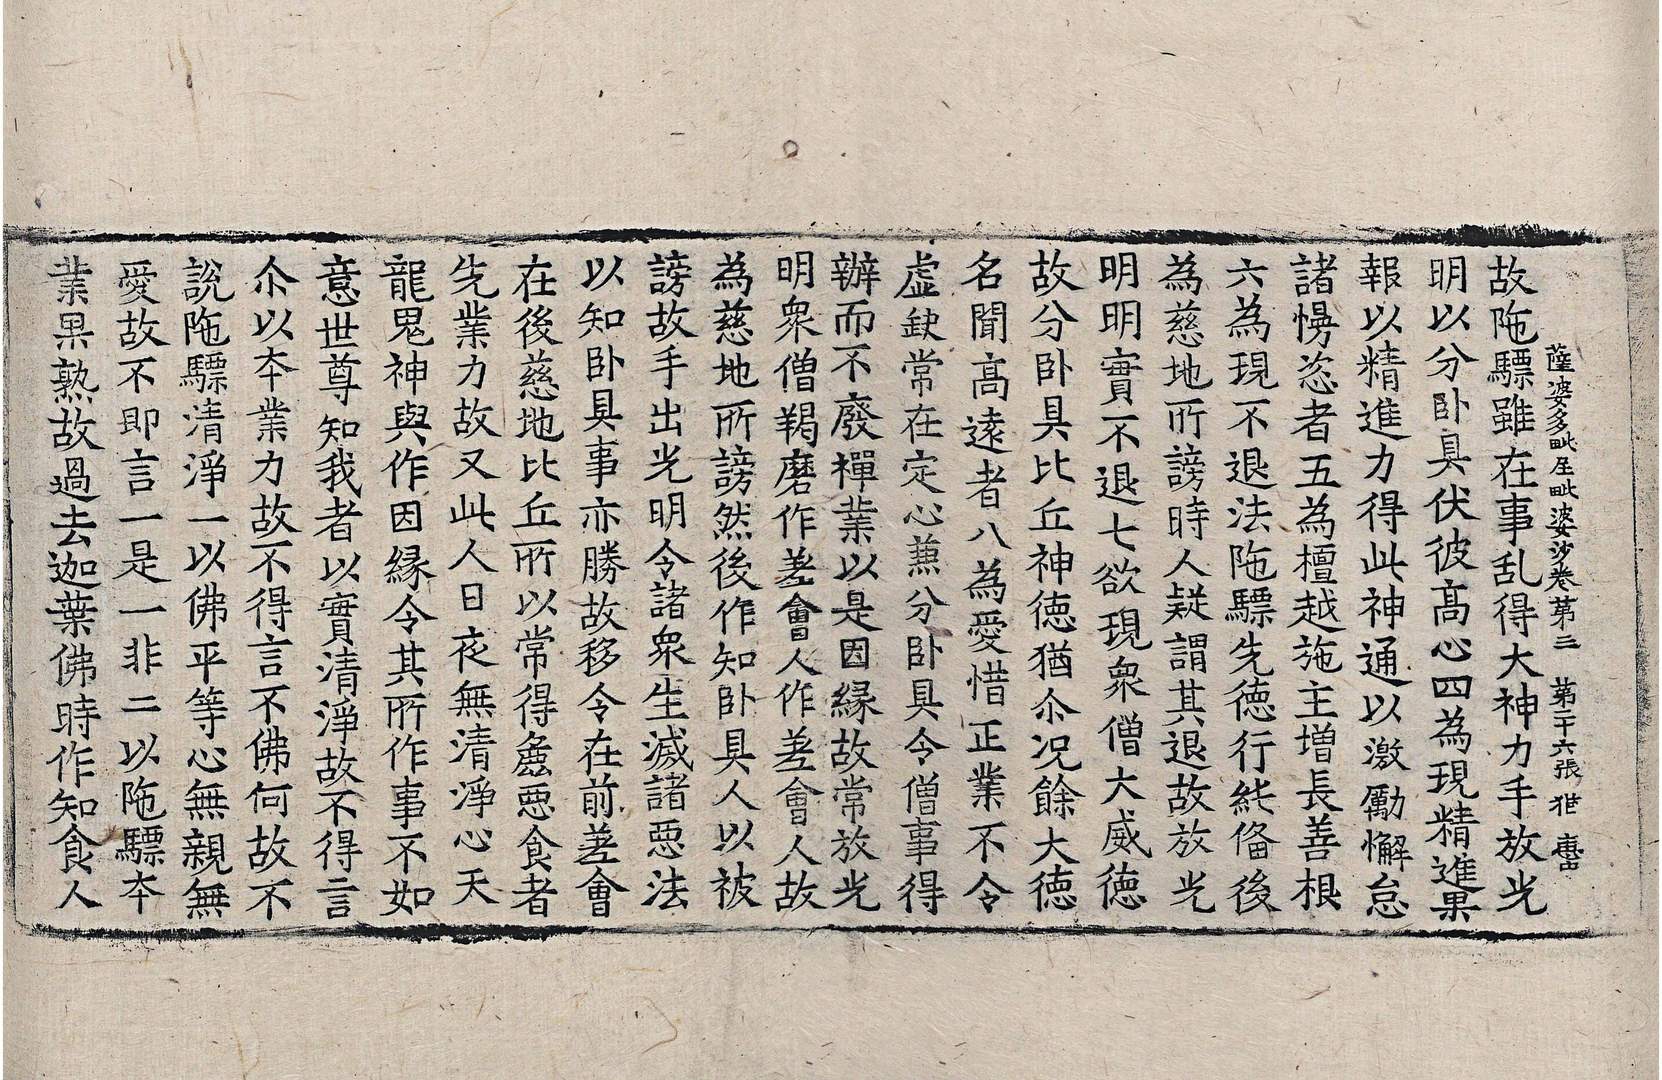 薩婆多毗尼毗婆沙卷第三　第二十六張
故陁驃雖在事乱得大神力手放光
明以分卧具伏彼髙心四為現精進果
報以精進力得此神通以激勵懈怠
諸慢恣者五為檀越施主增長善根
六為現不退法陁驃先德行純俻後
為慈地所謗時人疑謂其退故放光
明明實不退七欲現衆僧大威德
故分卧具比丘神德猶尒况餘大德
名聞髙遠者八為愛惜正業不令
虛缺常在定心兼分卧具令僧事得
辦而不廢禪業以是因縁故常放光
明衆僧羯磨作差會人作差會人故
為慈地所謗然後作知卧具人以被
謗故手出光明令諸衆生滅諸惡法
以知卧具事亦勝故移令在前差會
在後慈地比丘所以常得麁惡食者
先業力故又此人日夜無清淨心天
龍鬼神與作因縁令其所作事不如
意世尊知我者以實清淨故不得言
尒以本業力故不得言不佛何故不
說陁驃清淨一以佛平等心無親無
愛故不即言一是一非二以陁驃本
業果熟故過去迦葉佛時作知食人